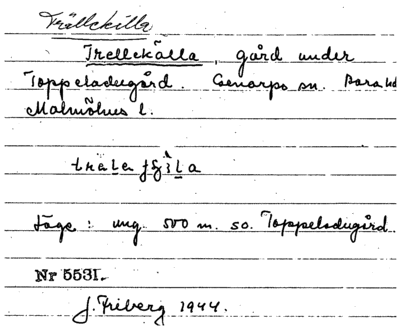 Trällekilla
Trellekälla, gård under
Toppeladugård. Genarps sn. Bara hd
Malmöhus l.
Läge: ung. 500 m. so. Toppeladugård
Nr 5531.
J. Friberg 1944.